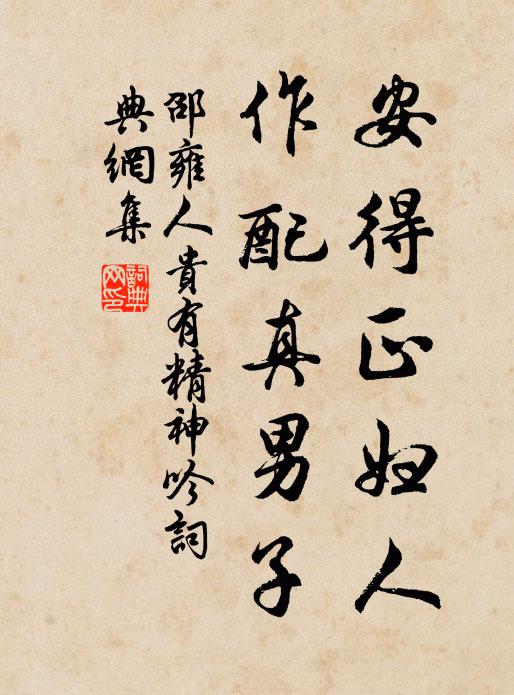 安得正婦人
作配真男子
邵雍人貴有精神吟詞
典網集
詞典网印